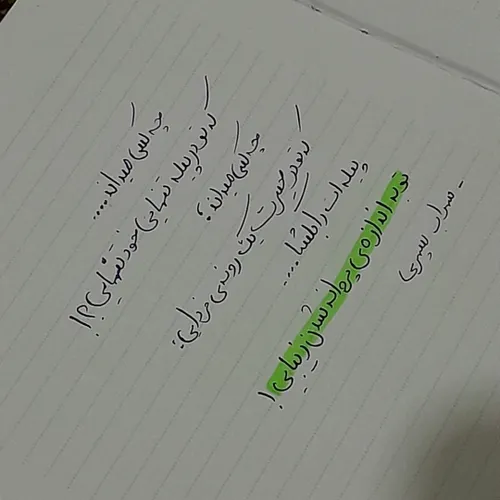 چه کسی میداند....
که تو در پیله تنهایی خود تنهایی؟!
چه کسی میداند؛
که تو در حسرت یک روزنه‌ی فردایی؛
پیله ات را بگشا....
تو به اندازه‌ی پروانه شدن زیبایی!
- سهراب سپهری